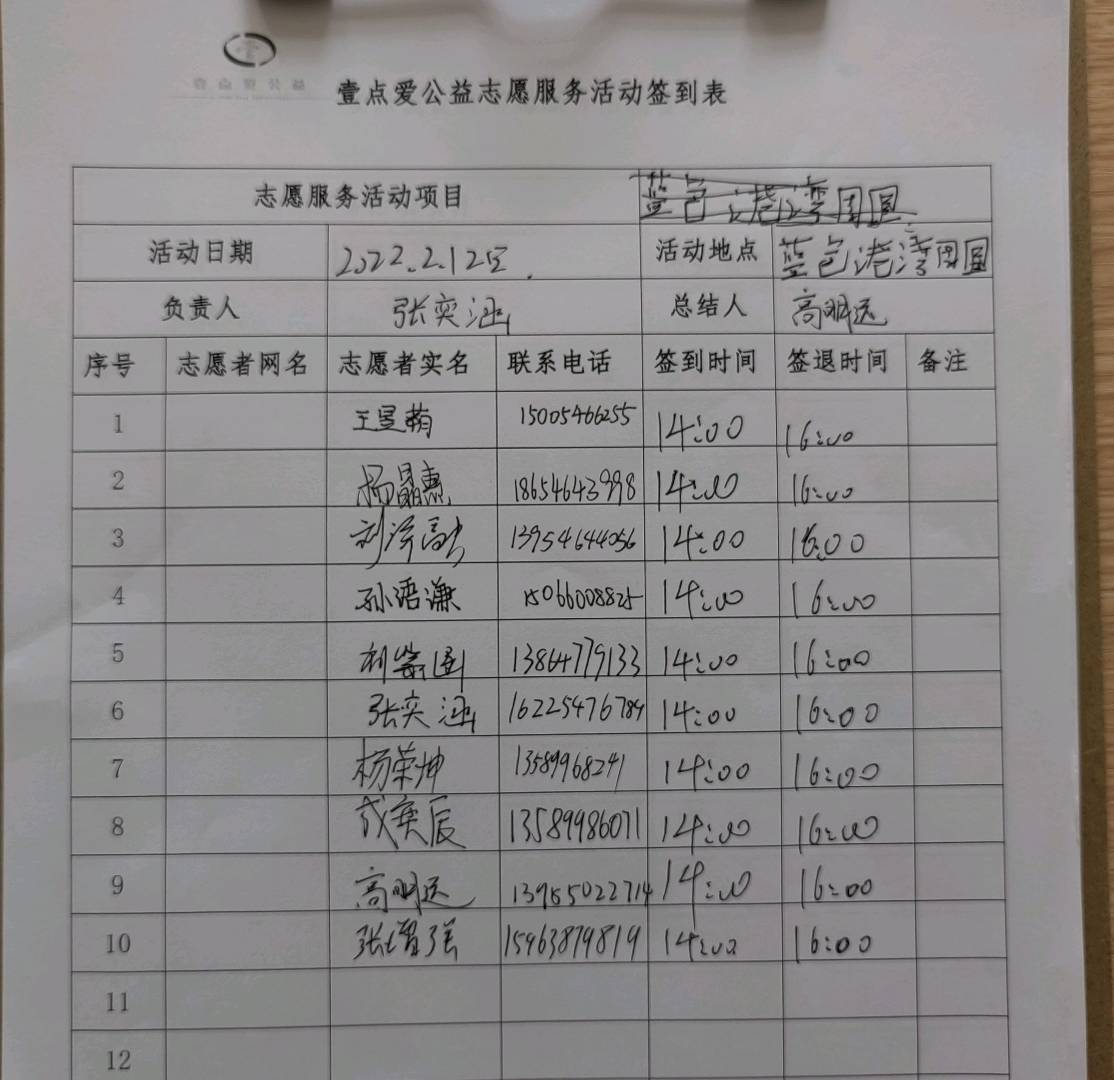 壹点爱公益
壹点爱公益志愿服务活动签到表
志愿服务活动项目 蓝色港湾团圆
活动日期 2022.2.12日 活动地点 蓝色港湾团圆
负责人 张奕涵 总结人 高明远
序号 志愿者网名 志愿者实名 联系电话 签到时间 签退时间 备注
1 王昱萌 15005466255 14:00 16:00
2 杨晶惠 18654643998 14:00 16:00
3 刘泽 13954644056 14:00 16:00
4 孙浯谦 15066008825 14:00 16:00
5 13864779133 14:00 16:00
6 张奕涵 16225476784 14:00 16:00
7 杨荣坤 13589968241 14:00 16:00
8 成奕辰 13589986071 14:00 16:00
9 高明远 13965022714 14:00 16:00
10 张增强 15963879819 14:00 16:00
11
12